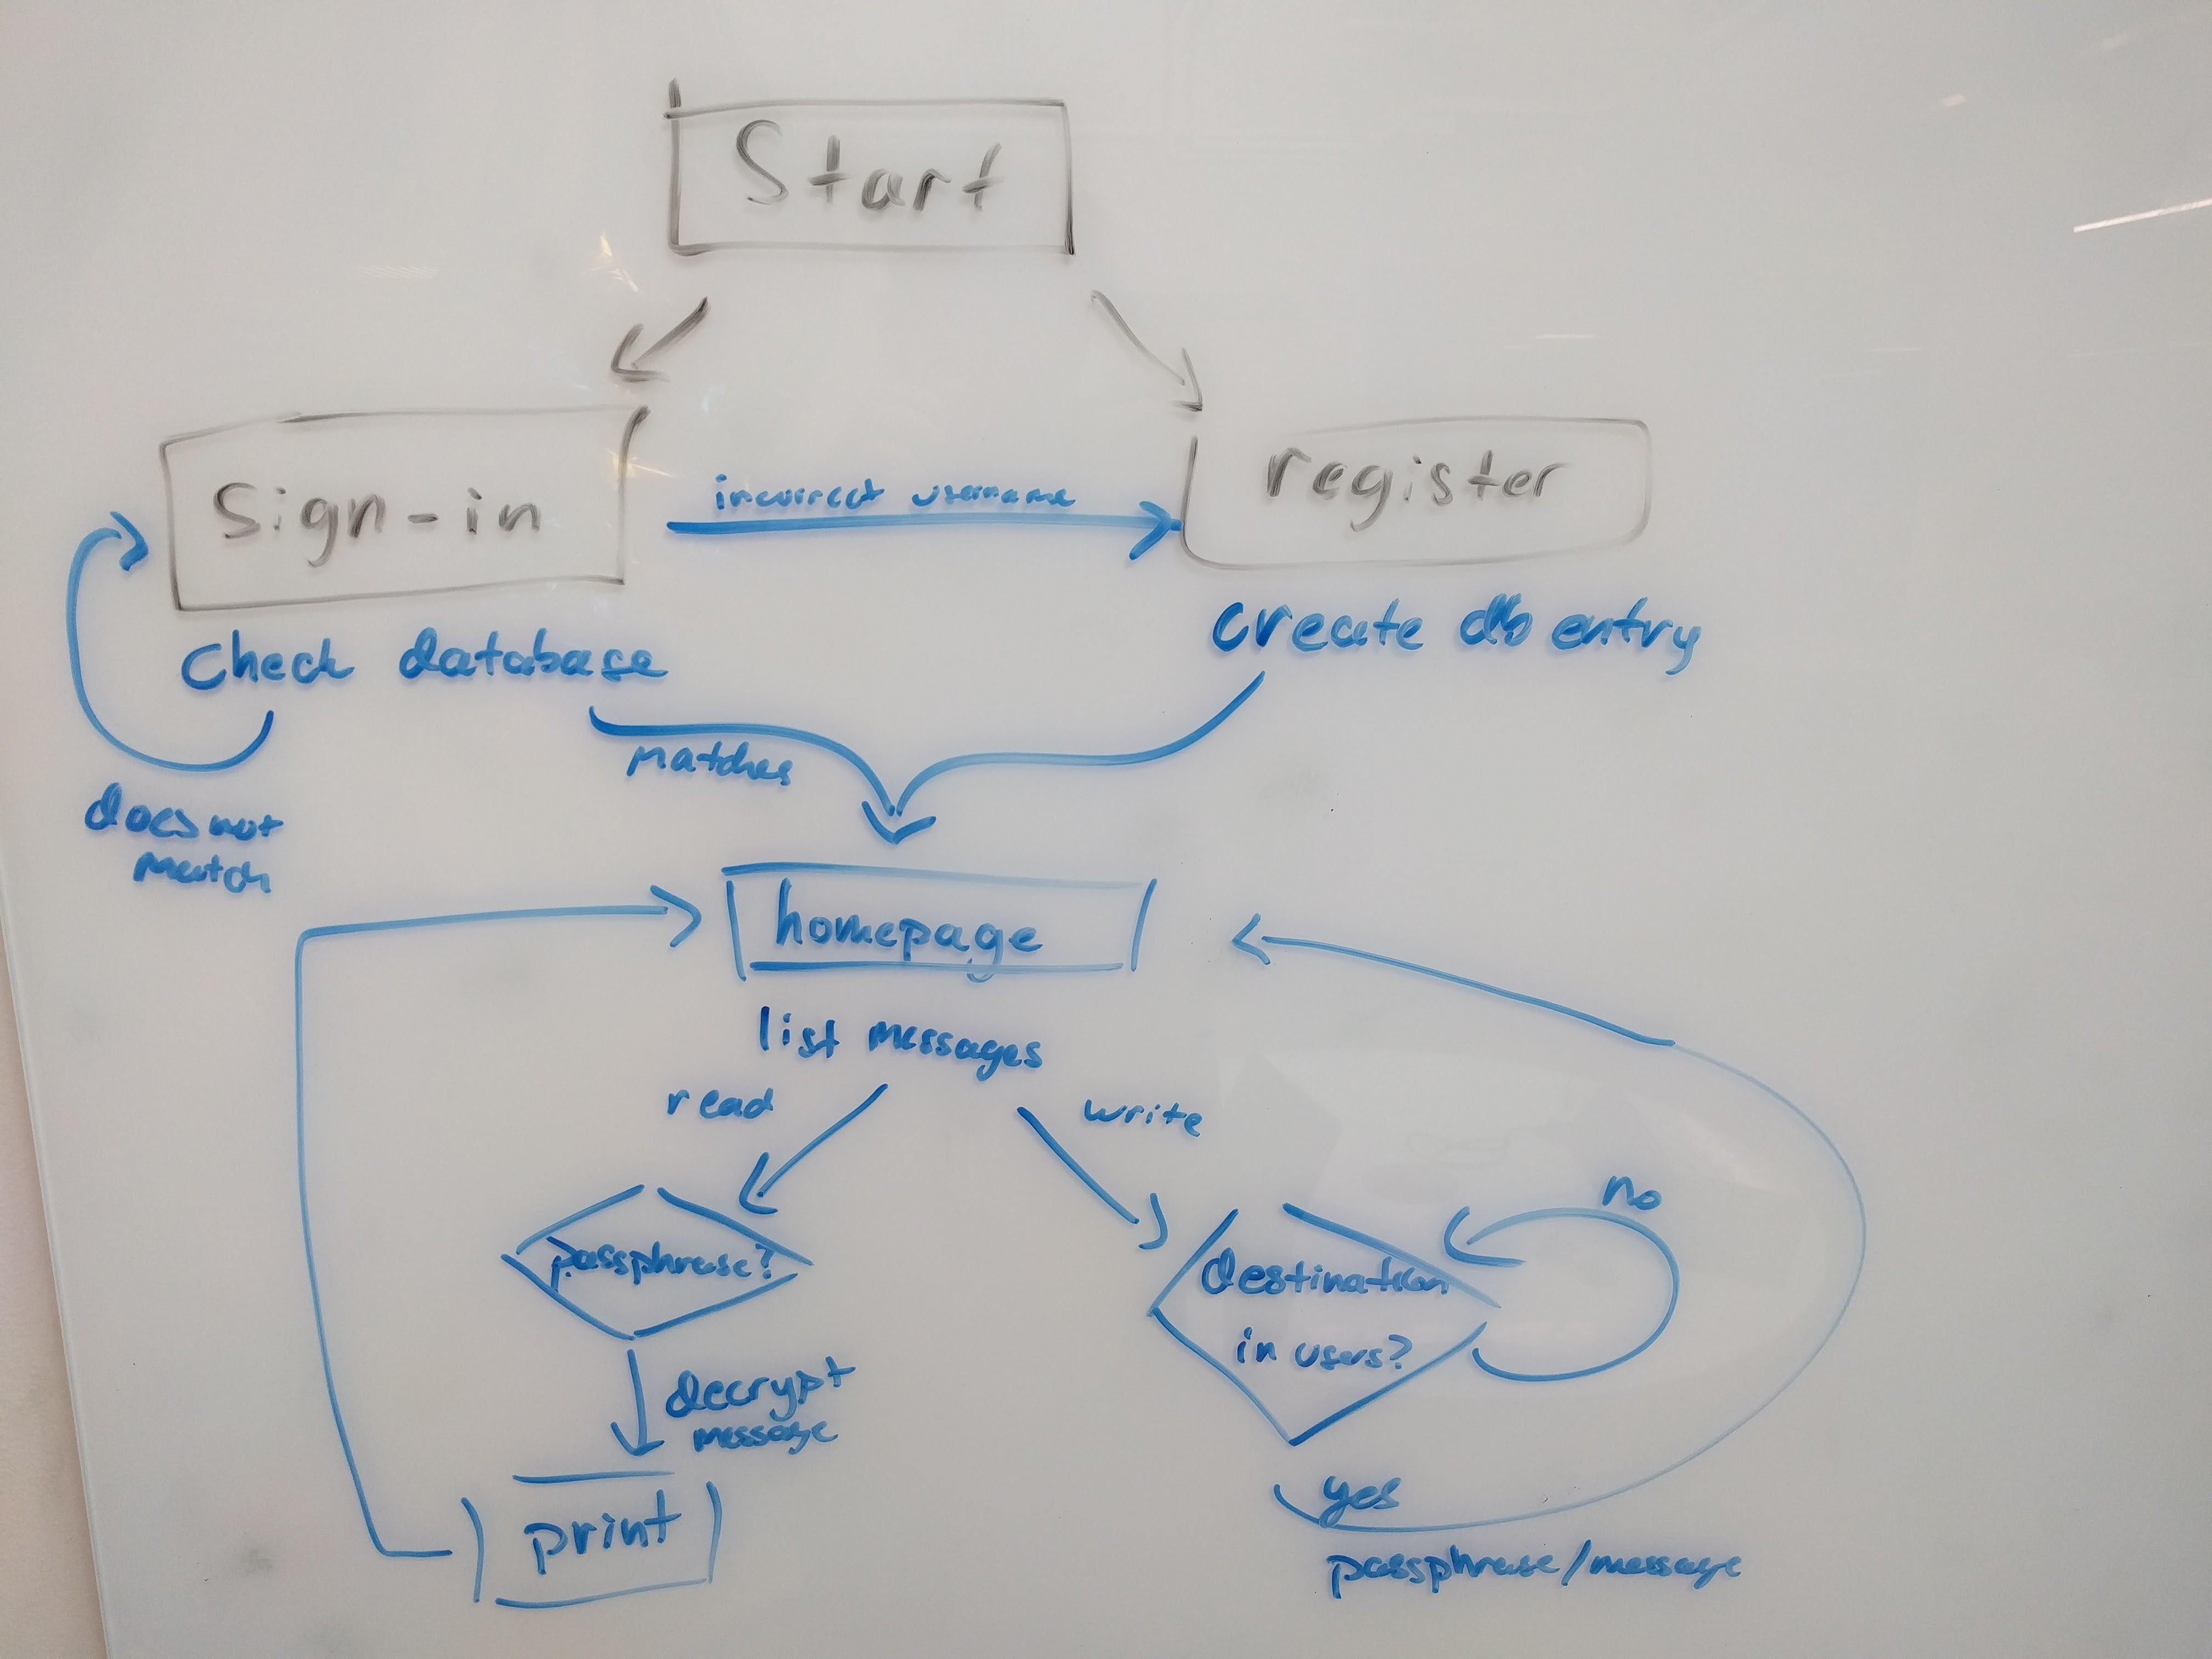 Start
Sign-in
incorrect username
register
Check database
create db entry
matches
does not
match
homepage
list messages
read
write
passphrase?
no
destination
in users?
decrypt
message
print
yes
passphrase/message